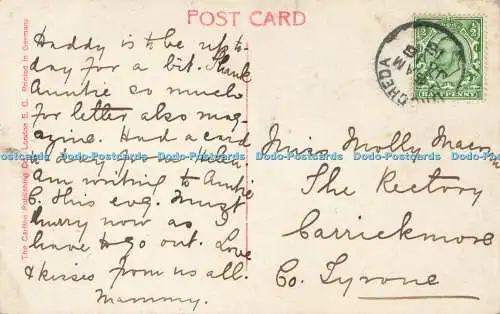 POST CARD
Haddy is to be up to-
day for a bit. Thank
Auntie so much
for letter also mag-
azine. Had a card
am writing to Auntie
C. this evg. Must
hurry now as I
have to go out. Love
& kisses from us all.
Mammy.
Miss Molly
The Rectory
Carrickmore
Co. Tyrone
HALF PENNY
The Carlton Publishing Co., London E. C. Printed in Germany
Dodo-Postcards Dodo-Postcards Dodo-Postcards Dodo-Postcards Dodo-Postcards